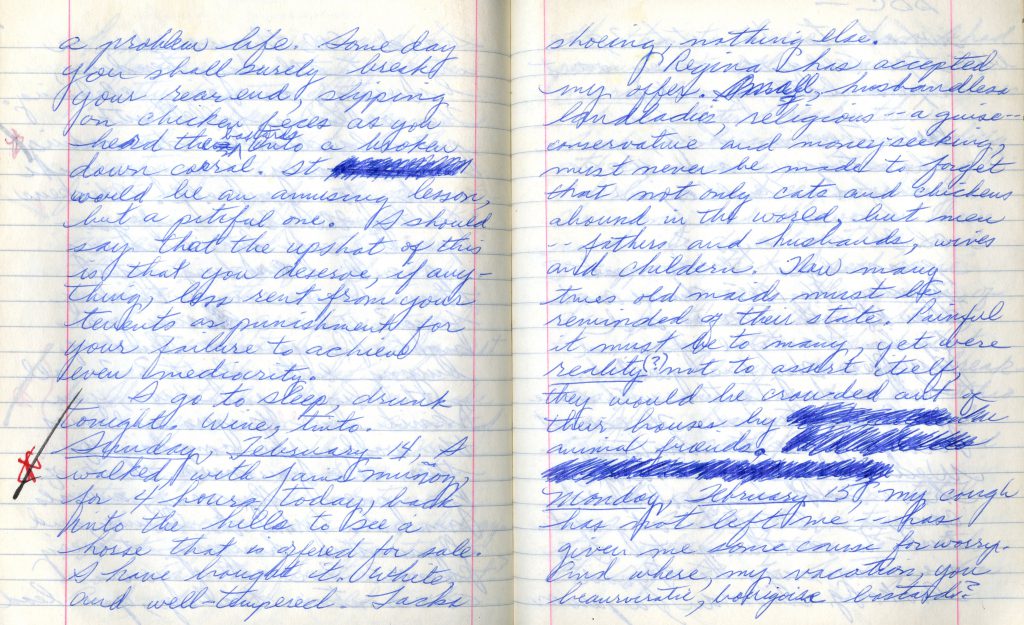 a problem life. Some day
you shall surely break
your rear end, slipping
on chicken feces as you
head the bastards into a broken
down corral. It
would be an amusing lesson,
but a pitiful one. I should
say that the upshot of this
is that you deserve, if any-
thing, less rent from your
tenents as punishment for
your failure to achieve
even mediocrity.
I go to sleep, drunk
tonight. Wine, tinto.
Sunday, February 14, I
walked, with
for 4 hours today, back
into the hills to see a
horse that is offered for sale.
I have bought it. White,
and well-tempered. Lacks
shoeing, nothing else.
Regina has accepted
my offer. Small, husbandless
landladies, religious -- a guise --
conservative and money-seeking,
must never be made to forget
that not only cats and chickens
abound in the world, but men
-- fathers and husbands, wives
and childern. How many
times old maids must be
reminded of their state. Painful
it must be to many, yet were
reality(?) not to assert itself,
they would be crowded out of
their houses by
animal friends.
Monday, February 15, my cough
has not left me -- has
given me some cause for worry.
And where, my vacation, you
beaurvratic, bastards?